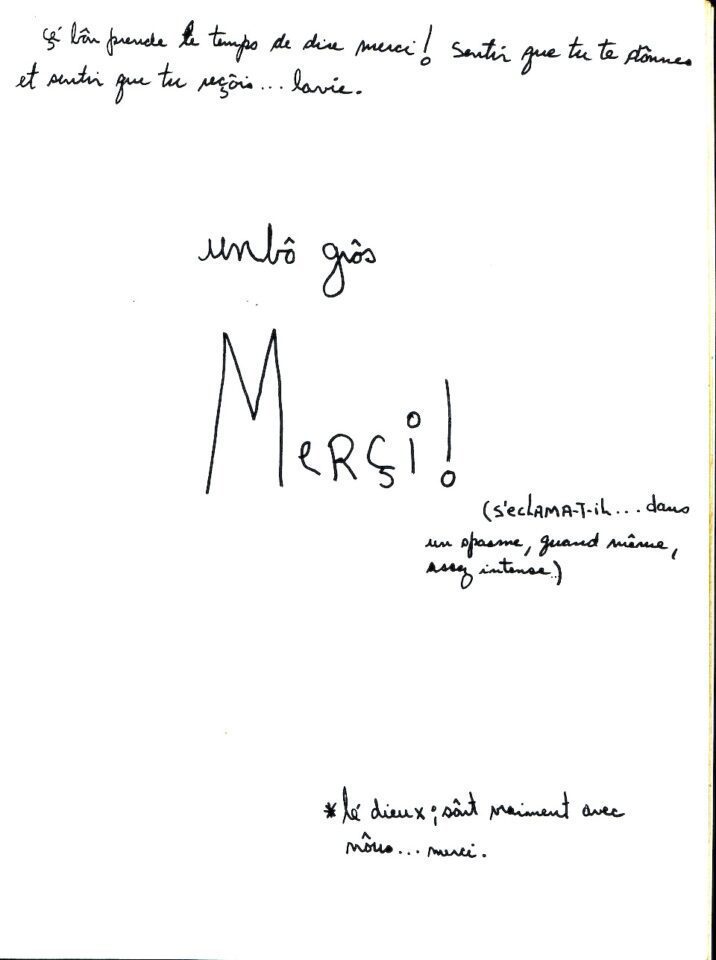 çé bôn prende le temps de dire merci! Sentir que tu te dônnes
et sentir que tu reçôis... lavie.
unbô grôs
MerÇi!
(s'eclAMA-T-il... dans
un spasme, quand même,
assez intense.)
* lé dieux; sônt vraiment avec
nôus... merci.